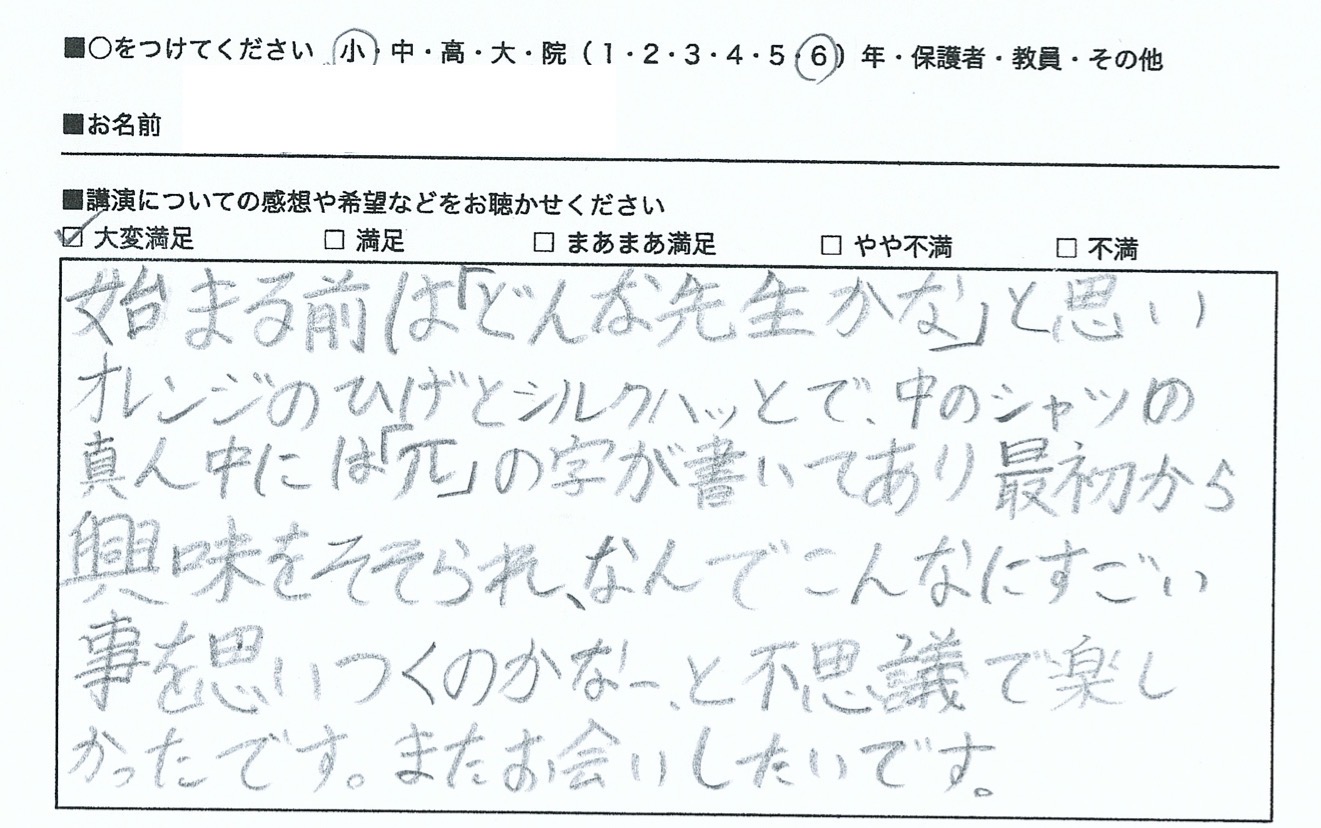 ■○をつけてください 小・中・高・大・院（1・2・3・4・5・6）年・保護者・教員・その他
■お名前
■講演についての感想や希望などをお聴かせください
☑ 大変満足 □ 満足 □ まあまあ満足 □ やや不満 □ 不満
始まる前は「どんな先生かな」と思い
オレンジのひげとシルクハッとで、中のシャツの
真ん中には「π」の字が書いてあり最初から
興味をそそられ、なんでこんなにすごい
事を思いつくのかなー、と不思議で楽し
かったです。またお会いしたいです。